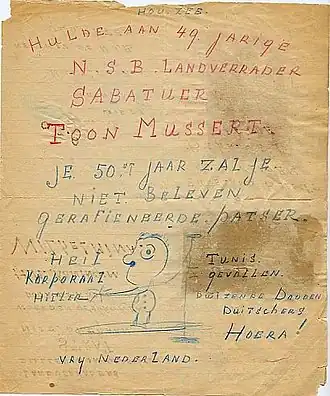 HOU ZEE.
HULDE AAN 49 JARIGE
N.S.B LANDVERRADER
SABATUER
TOON MUSSERT.
JE 50.ST JAAR ZAL JE
NIET BELEVEN
GERAFIENBERDE PATSER.
HEIL
KORPORAAL
HITLER
TUNIS
GEVALLEN.
DUIZENDE DOODEN
DUITSCHERS
HOERA!
VRY NEDERLAND.